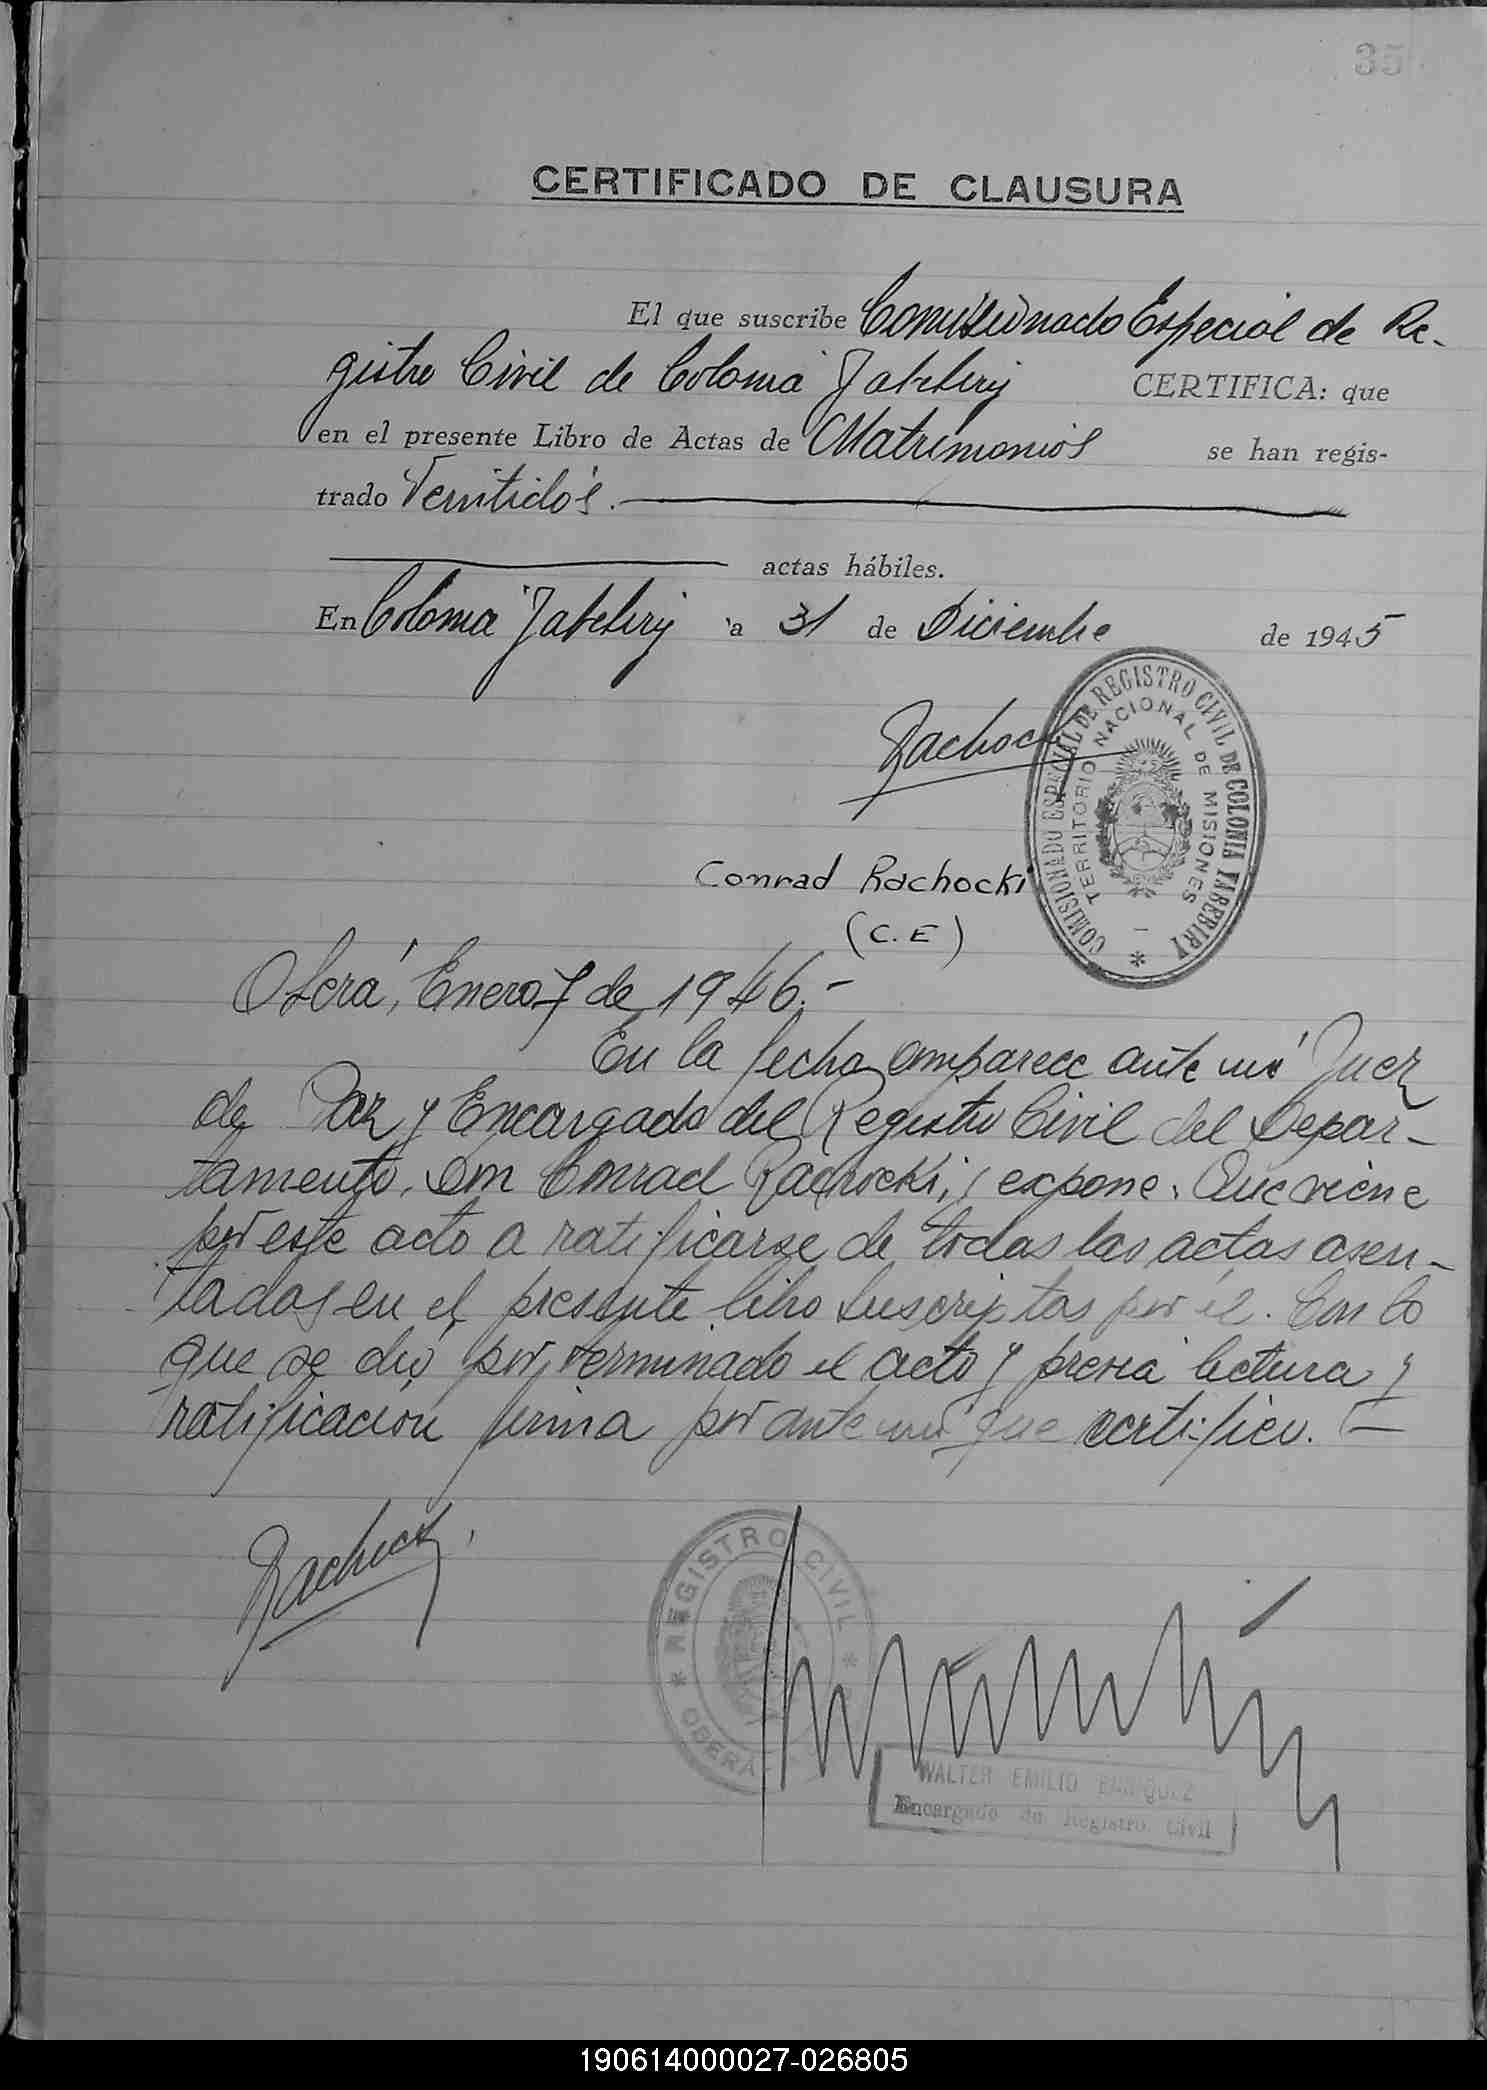 35
CERTIFICADO DE CLAUSURA
El que suscribe Comisionado Especial de Re-
gistro Civil de Colonia Yabebiry CERTIFICA: que
en el presente Libro de Actas de Matrimonios se han regis-
trado Veintidós.
actas hábiles.
En Colonia Yabebiry a 31 de Diciembre de 1945
Rachocki
COMISIONADO ESPECIAL DE REGISTRO CIVIL DE COLONIA YABEBIRY
TERRITORIO NACIONAL DE MISIONES
Conrad Rachocki
(C.E)
Oberá, Enero 7 de 1946.-
En la fecha comparece ante mí Juez
de Paz y Encargado del Registro Civil del Depar-
tamento, don Conrad Rachocki, y expone: Que viene
por este acto a ratificarse de todas las actas asen-
tadas en el presente libro suscriptas por él. Con lo
que se dió por terminado el acto y previa lectura y
ratificación firma por ante mí que certifico. —
Rachocki
REGISTRO CIVIL
OBERÁ
WALTER EMILIO ENRIQUEZ
Encargado de Registro Civil
190614000027-026805